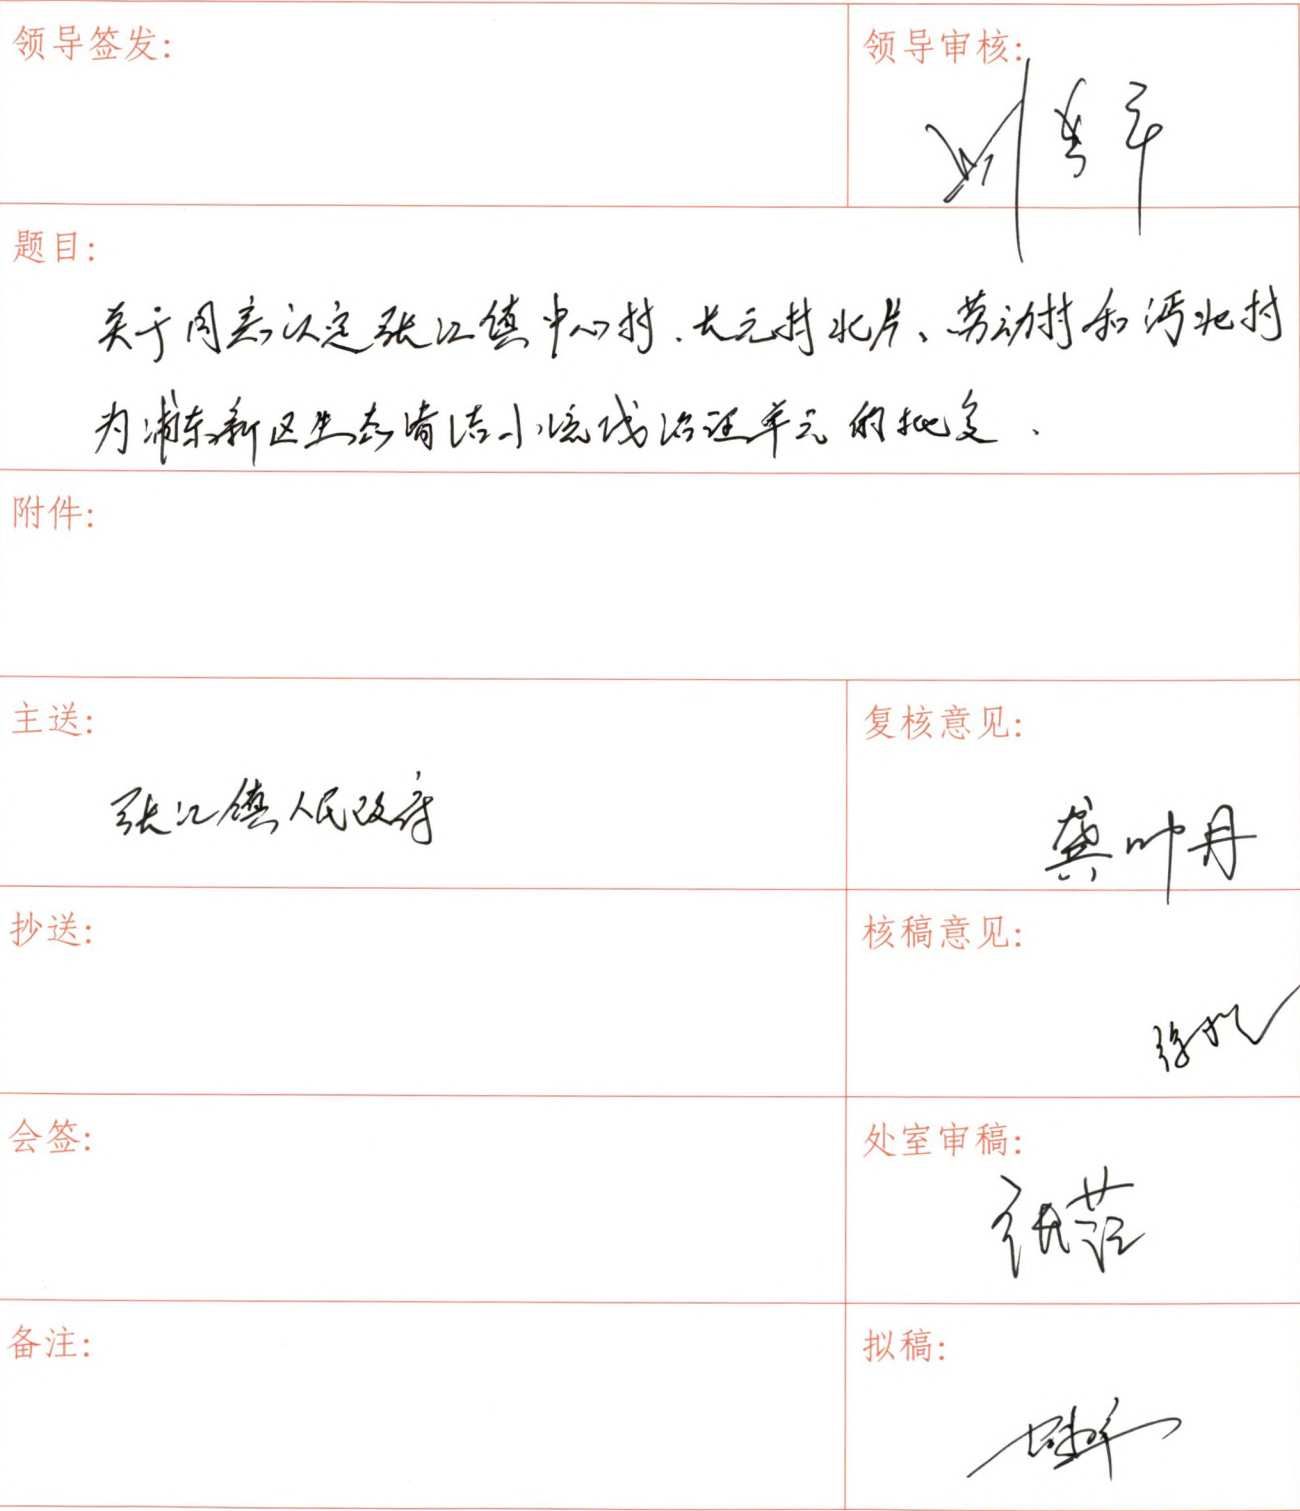 领导签发:
领导审核:
题目:
关于同意认定张江镇中心村、长元村北片、劳动村和沔北村
为浦东新区生态清洁小流域治理单元的批复.
附件:
主送:
张江镇人民政府
复核意见:
龚帅丹
抄送:
核稿意见:
会签:
处室审稿:
备注:
拟稿: